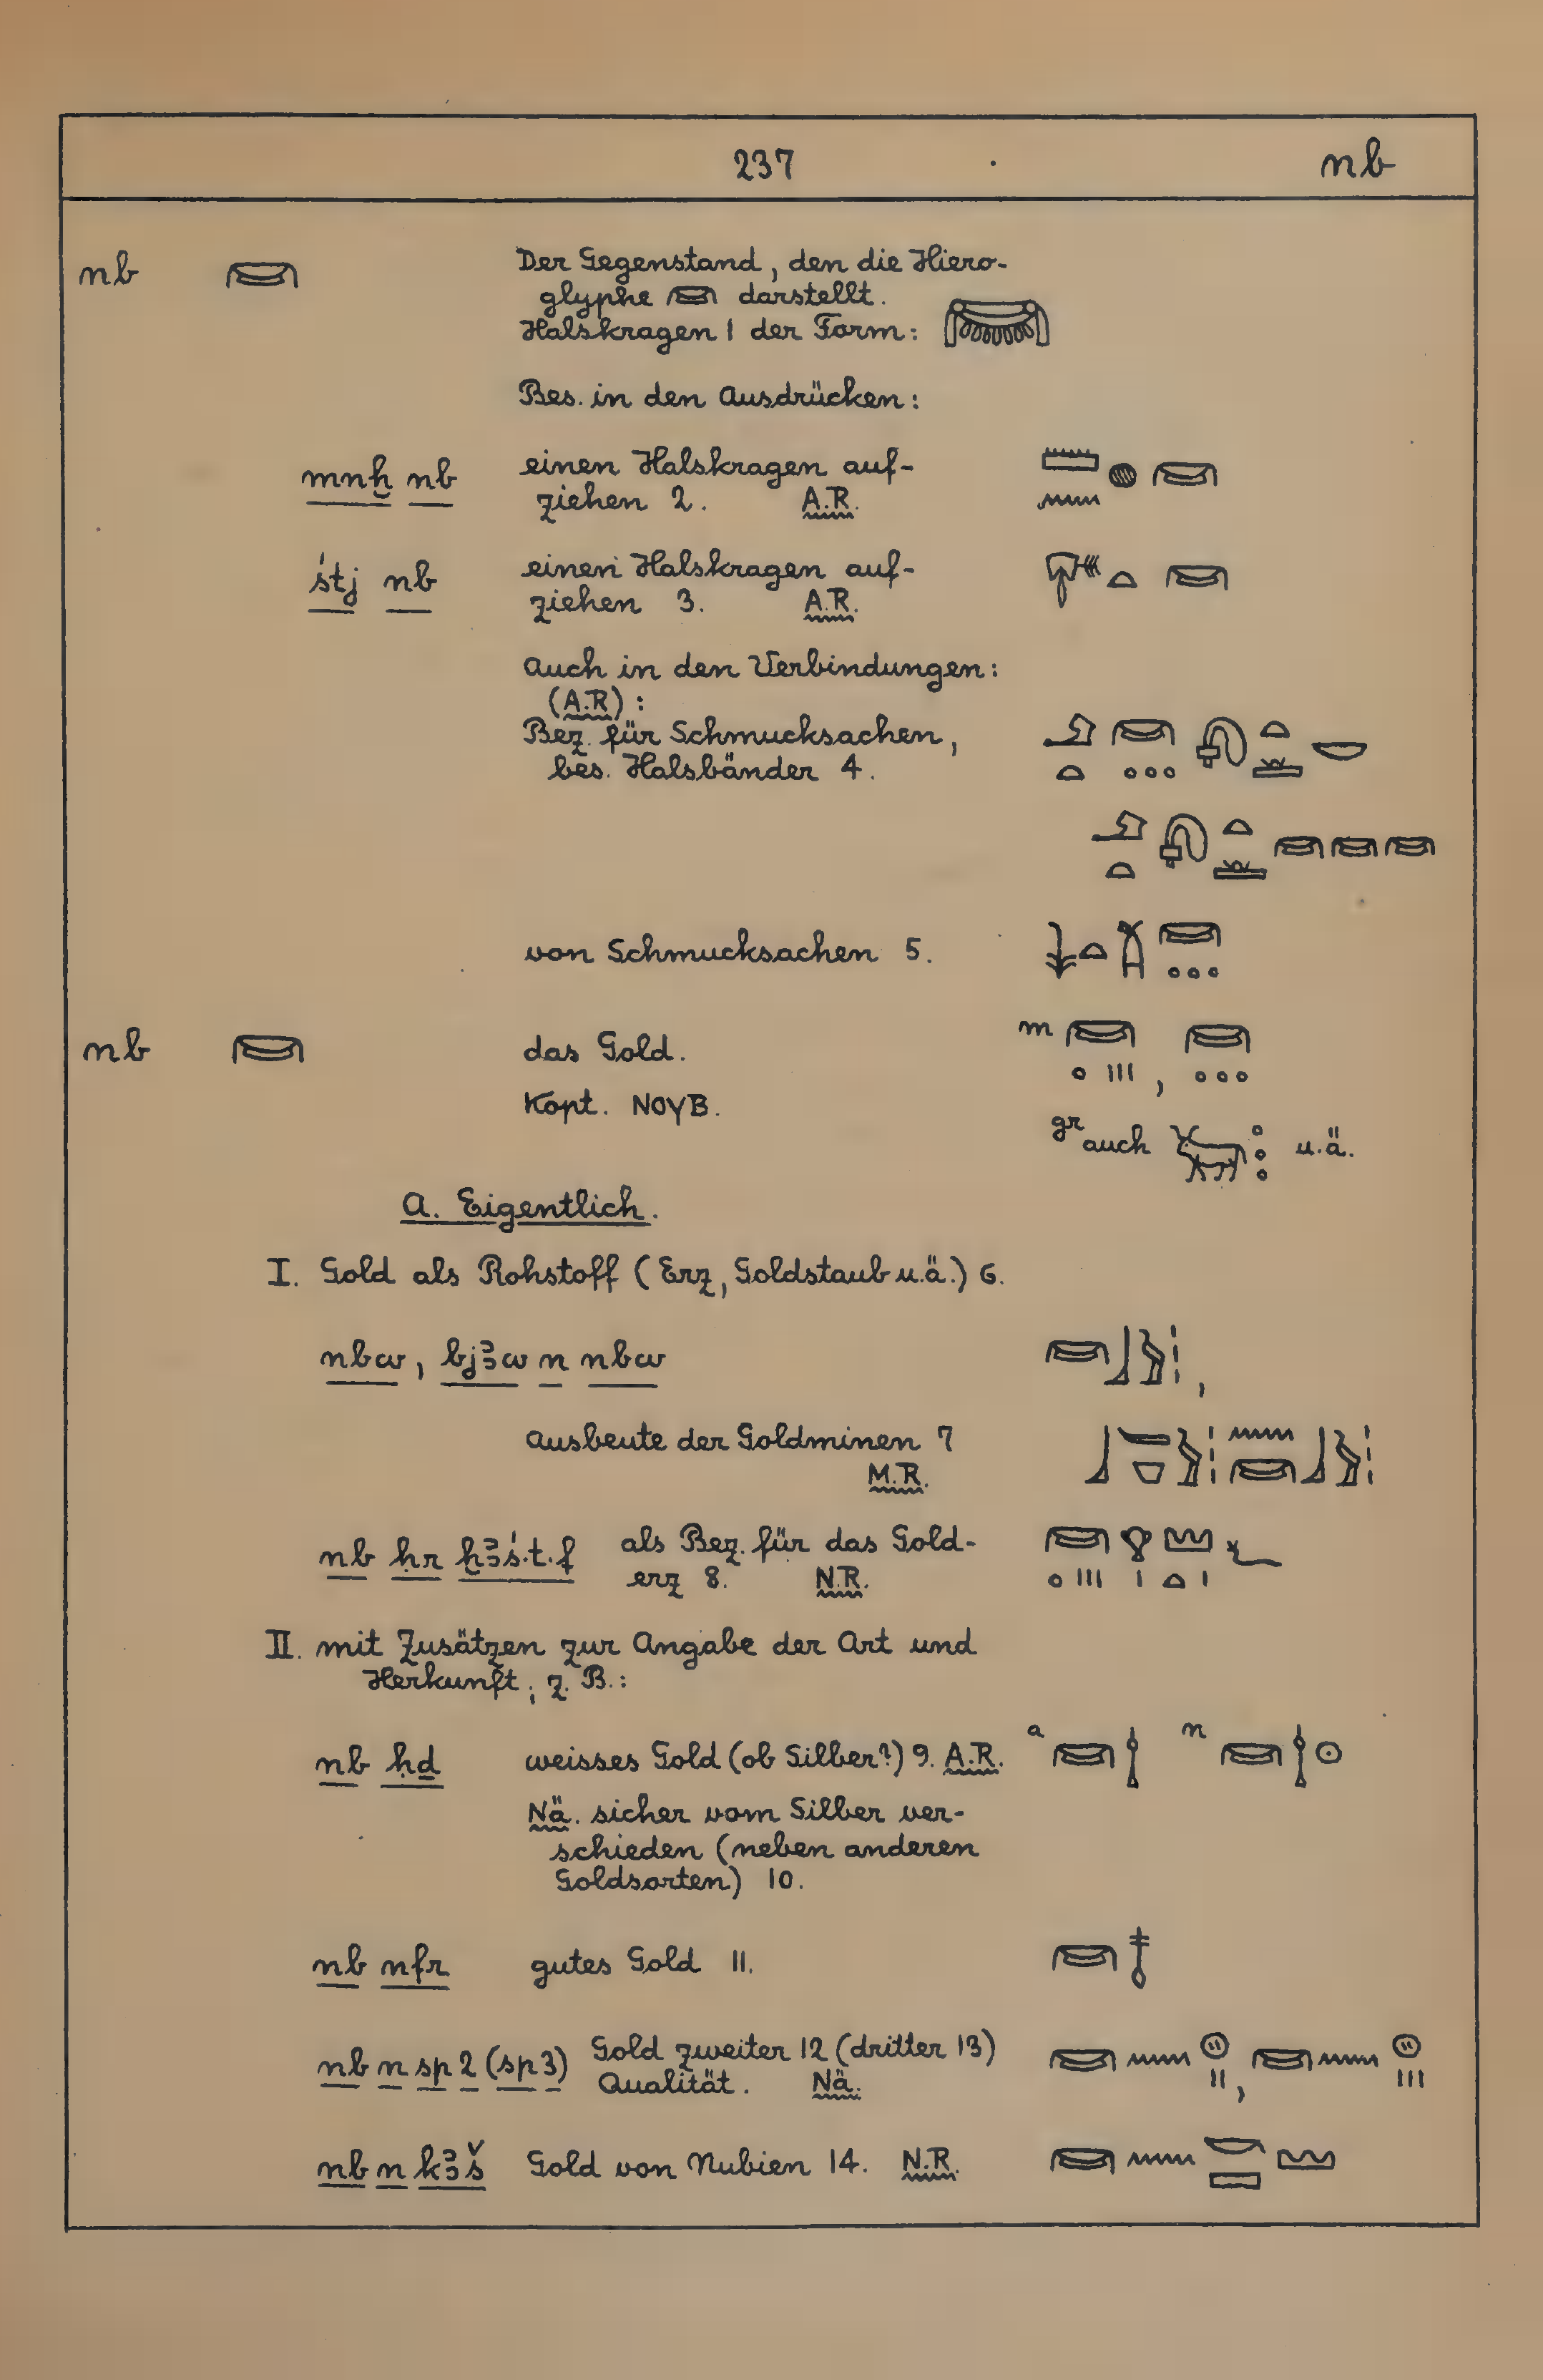 237 nb
nb 𓋞 Der Gegenstand, den die Hiero-
glyphe 𓋞 darstellt.
Halskragen 1 der Form:
Bes. in den Ausdrücken:
mnḫ nb einen Halskragen auf- 𓏠𓈖𓐍𓋞
ziehen 2. A.R.
śtj nb einen Halskragen auf- 𓄝𓏏𓋞
ziehen 3. A.R.
Auch in den Verbindungen:
(A.R):
Bez. für Schmucksachen,
bes. Halsbänder 4.
von Schmucksachen 5.
nb 𓋞 das Gold. m 𓋞 𓈒 𓏥, 𓋞 𓈒𓈒𓈒
Kopt. ΝΟΥΒ.
gr auch 𓃒 𓈒𓈒𓈒 u.ä.
A. Eigentlich.
I. Gold als Rohstoff (Erz, Goldstaub u.ä.) 6.
nbw, bjꜣw n nbw
Ausbeute der Goldminen 7
M.R.
nb ḥr ḫꜣś.t.f als Bez. für das Gold- 𓋞𓈒𓏥𓁷𓏤𓈉𓏏𓏤𓆑
erz 8. N.R.
II. mit Zusätzen zur Angabe der Art und
Herkunft, z.B.:
nb ḥḏ weisses Gold (ob Silber?) 9. A.R. a 𓋞𓌉 n 𓋞𓌉𓇳
Nä. sicher vom Silber ver-
schieden (neben anderen
Goldsorten) 10.
nb nfr gutes Gold 11. 𓋞𓄤
nb n sp 2 (sp 3) Gold zweiter 12 (dritter 13) 𓋞𓈖𓊗𓏮, 𓋞𓈖𓊗𓏼
Qualität. Nä.
nb n kꜣš Gold von Nubien 14. N.R. 𓋞𓈖𓎡𓈙𓈉